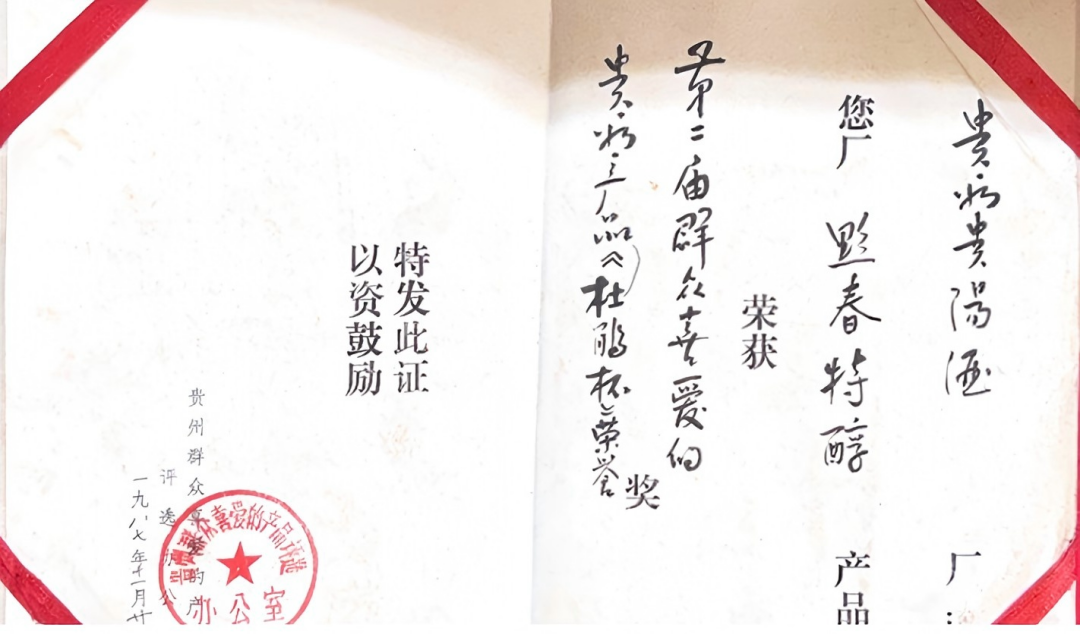 贵州贵阳酒厂：
您厂黔春特醇产品
荣获
第二届群众喜爱的
贵州产品《杜鹃杯荣誉奖
特发此证
以资鼓励
贵州群众喜爱的产
评选办公
一九八七年十一月廿
贵州群众喜爱的产品评选
办公室